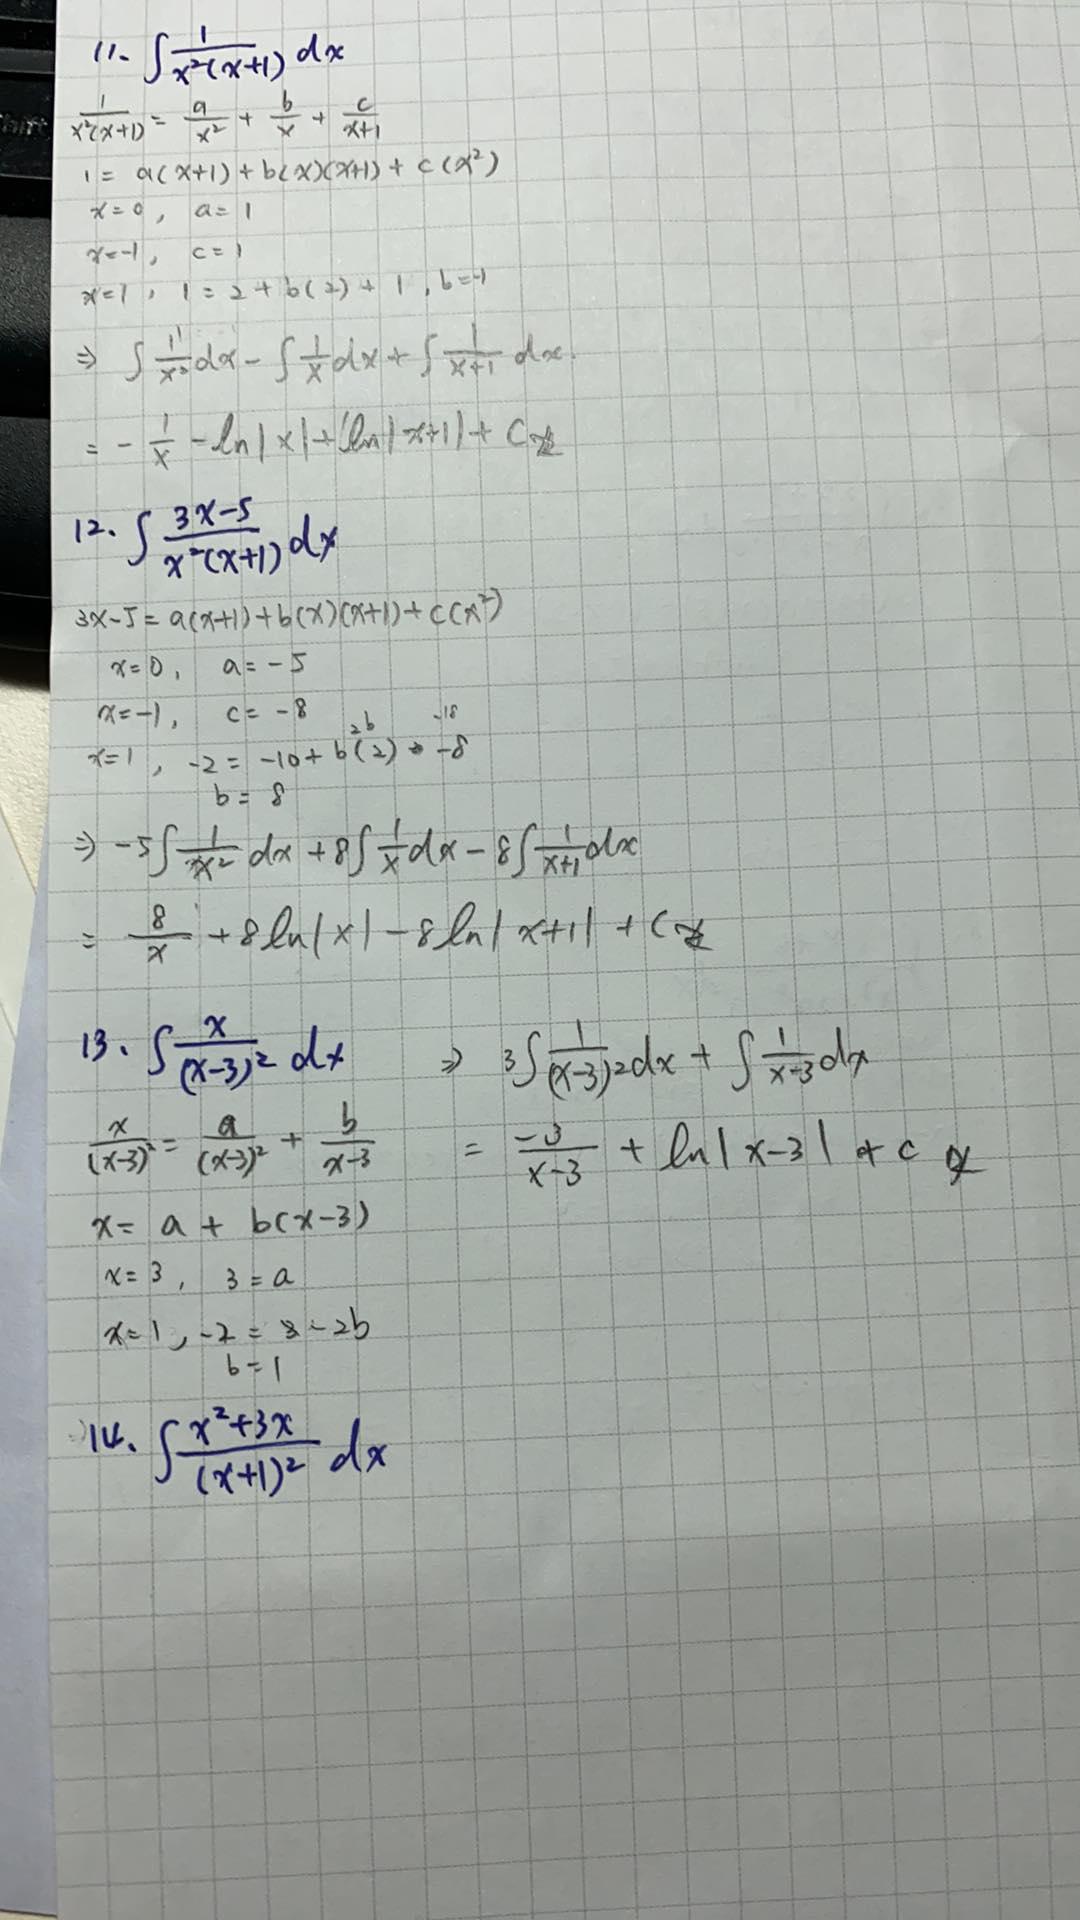 11. ∫ 1/(x²(x+1)) dx
1/(x²(x+1)) = a/x² + b/x + c/(x+1)
1 = a(x+1) + b(x)(x+1) + c(x²)
x=0, a=1
x=-1, c=1
x=1, 1=2+b(2)+1, b=-1
⇒ ∫ 1/x² dx - ∫ 1/x dx + ∫ 1/(x+1) dx
= - 1/x - ln|x| + ln|x+1| + C
12. ∫ (3x-5)/(x²(x+1)) dx
3x-5 = a(x+1) + b(x)(x+1) + c(x²)
x=0, a=-5
x=-1, c=-8
2b -18
x=1, -2 = -10 + b(2) -8
b = 8
⇒ -5∫ 1/x² dx + 8∫ 1/x dx - 8∫ 1/(x+1) dx
= 8/x + 8ln|x| - 8ln|x+1| + C
13. ∫ x/(x-3)² dx ⇒ 3∫ 1/(x-3)² dx + ∫ 1/(x-3) dx
x/(x-3)² = a/(x-3)² + b/(x-3) = -3/(x-3) + ln|x-3| + C
x = a + b(x-3)
x=3, 3=a
x=1, -2 = 3-2b
b=1
14. ∫ (x²+3x)/(x+1)² dx